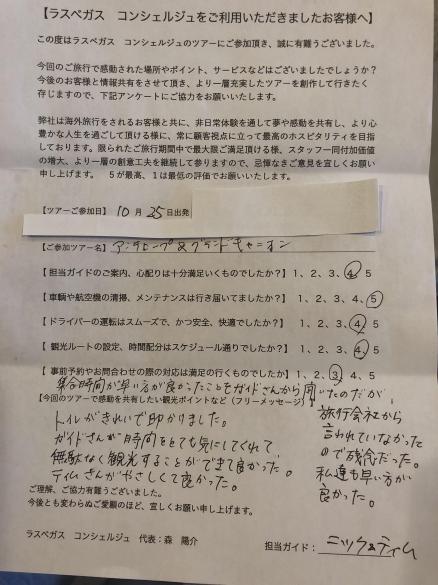 【ラスベガス　コンシェルジュをご利用いただきましたお客様へ】
この度はラスベガス　コンシェルジュのツアーにご参加頂き、誠に有難うございました。
今回のご旅行で感動された場所やポイント、サービスなどはございましたでしょうか？
今後のお客様と情報共有をさせて頂き、より一層充実したツアーを創作して行きたく
存じますので、下記アンケートにご協力をお願いいたします。
弊社は海外旅行をされるお客様と共に、非日常体験を通して夢や感動を共有し、より心
豊かな人生を過ごして頂ける様に、常に顧客視点に立って最高のホスピタリティを目指
しております。限られたご旅行期間中で最大限ご満足頂ける様、スタッフ一同付加価値
の増大、より一層の創意工夫を継続して参りますので、忌憚なきご意見を宜しくお願い
申し上げます。　5が最高、1は最低の評価でお願いいたします。
【ツアーご参加日】 10 月 25日出発
【ご参加ツアー名】 アンテロープ&グランドキャニオン
【担当ガイドのご案内、心配りは十分満足いくものでしたか？】 1、2、3、4、5
【車輌や航空機の清掃、メンテナンスは行き届いてましたか？】 1、2、3、4、5
【ドライバーの運転はスムーズで、かつ安全、快適でしたか？】 1、2、3、4、5
【観光ルートの設定、時間配分はスケジュール通りでしたか？】 1、2、3、4、5
【事前予約やお問合わせの際の対応は満足の行くものでしたか？】 1、2、3、4、5
集合時間が早い方が良かったことをガイドさんから聞いたのだが、
旅行会社から
言われていなかった
ので残念だった。
私達も早い方が
良かった。
【今回のツアーで感動を共有したい観光ポイントなど（フリーメッセージ）】
トイレがきれいで助かりました。
ガイドさんが時間をとても気にしてくれて
無駄なく観光することができて良かった。
ティムさんがやさしくて良かった。
ご理解、ご協力有難うございました。
今後とも変わらぬご愛顧のほど、宜しくお願い申し上げます。
ラスベガス　コンシェルジュ　代表：森　陽介
担当ガイド： ニック&ティム